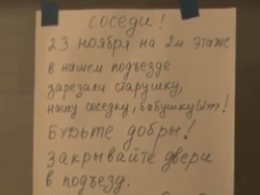 СОСЕДИ!
23 ноября на 2м этаже
в нашем подъезде
зарезали старушку,
нашу соседку, бабушку
Будьте добры!
Закрывайте двери
в подъезд.